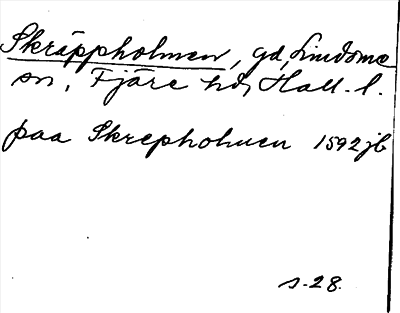 Skräppholmen, gd, Lindome
sn, Fjäre hd, Hall. l.
paa Skrepholmen 1592 jb
s. 28.